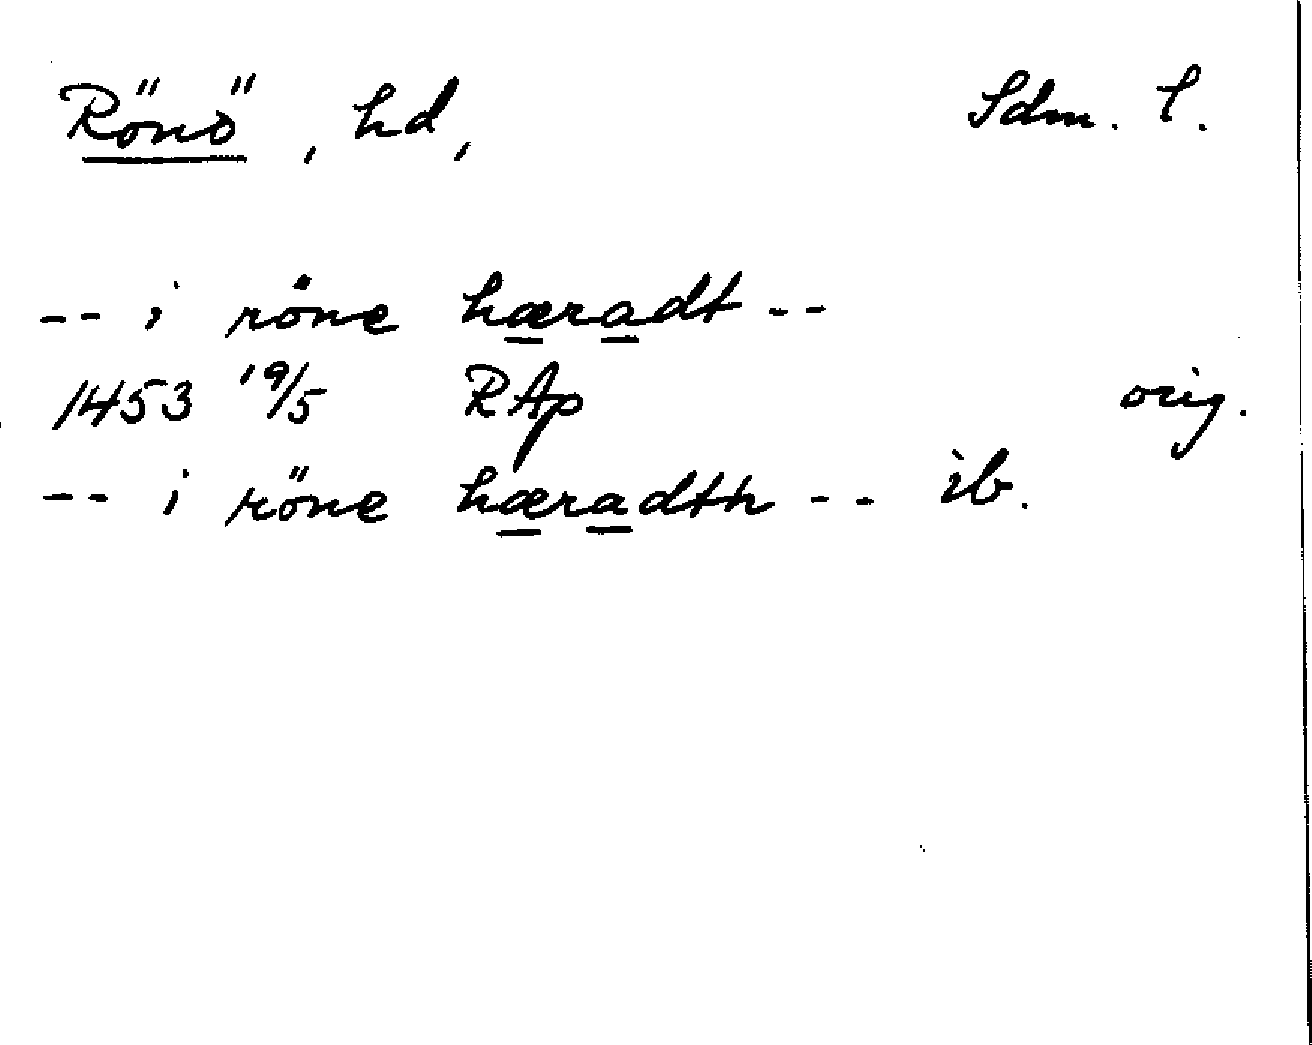 Rönö, hd,    Sdm. l.
-- i röne hæradt --
1453 19/5 RAp    orig.
-- i röne hæradth -- ib.